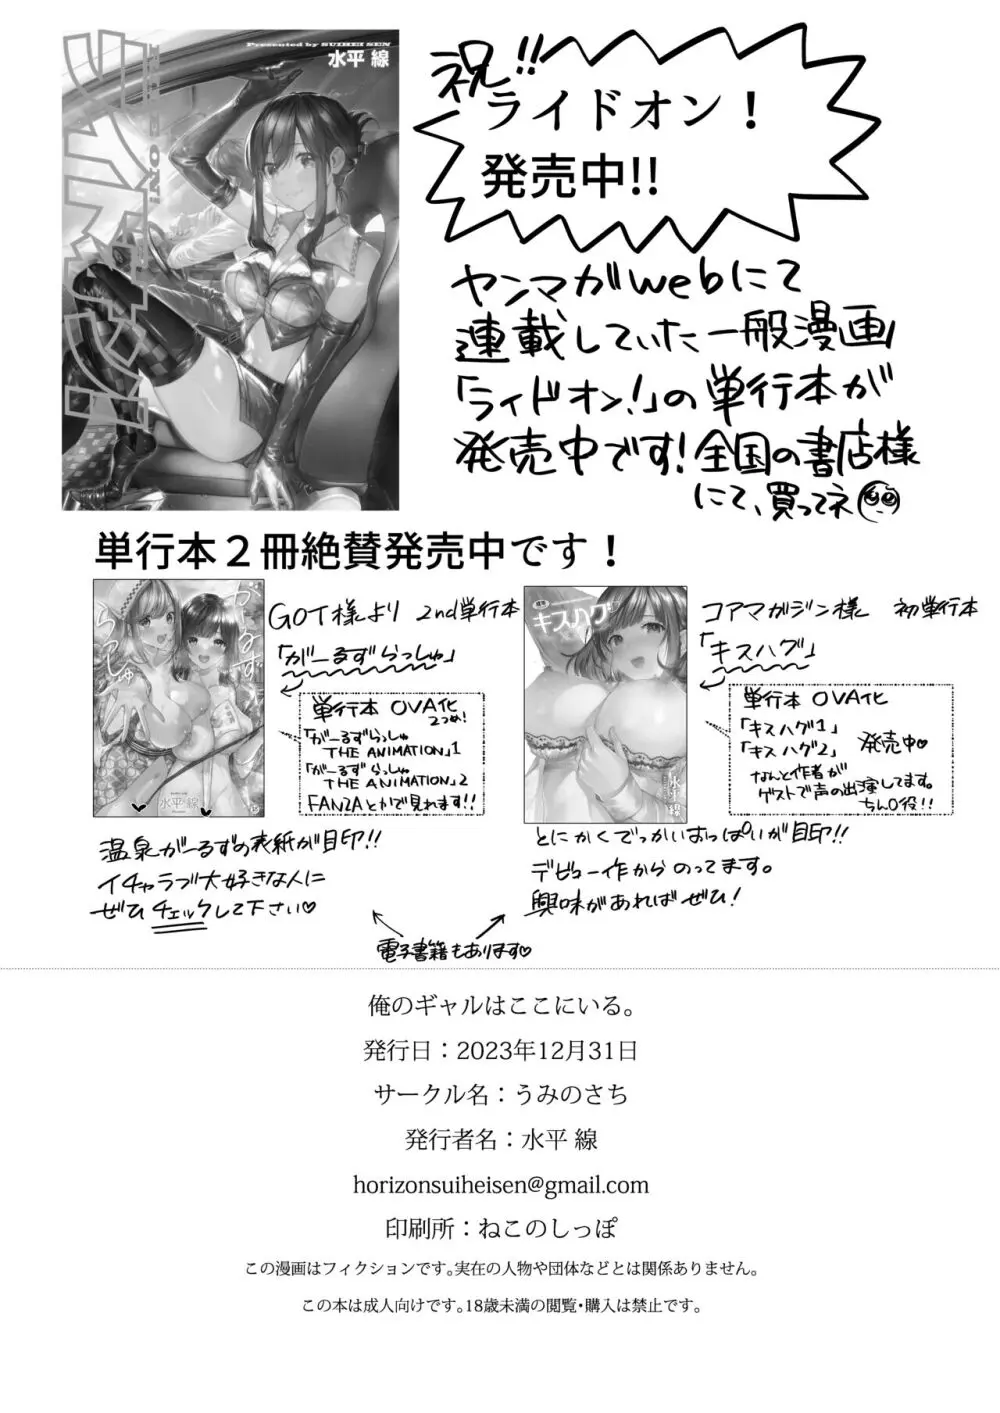 Presented by SUIHEI SEN
水平 線
祝!!
ライドオン！
発売中!!
ヤンマガwebにて
連載していた一般漫画
「ライドオン!」の単行本が
発売中です!全国の書店様
にて、買ってネ
単行本２冊絶賛発売中です！
がーるず
らっしゅ
水平線
GOT様より 2nd単行本
「がーるずらっしゅ」
単行本 OVA化
2つめ!
「がーるずらっしゅ
THE ANIMATION」1
「がーるずらっしゅ
THE ANIMATION」2
FANZAとかで見れます!!
温泉がーるずの表紙が目印!!
イチャラブ大好きな人に
ぜひチェックして下さい♡
キスハグ
水平線
コアマガジン様 初単行本
「キスハグ」
単行本 OVA化
「キスハグ1」
「キスハグ2」 発売中♡
なんと作者が
ゲストで声の出演してます。
ちん○役!!
とにかくでっかいおっぱいが目印!!
デビュー作からのってます。
興味があればぜひ!
電子書籍もあります♡
俺のギャルはここにいる。
発行日：2023年12月31日
サークル名：うみのさち
発行者名：水平 線
horizonsuiheisen@gmail.com
印刷所：ねこのしっぽ
この漫画はフィクションです。実在の人物や団体などとは関係ありません。
この本は成人向けです。18歳未満の閲覧・購入は禁止です。